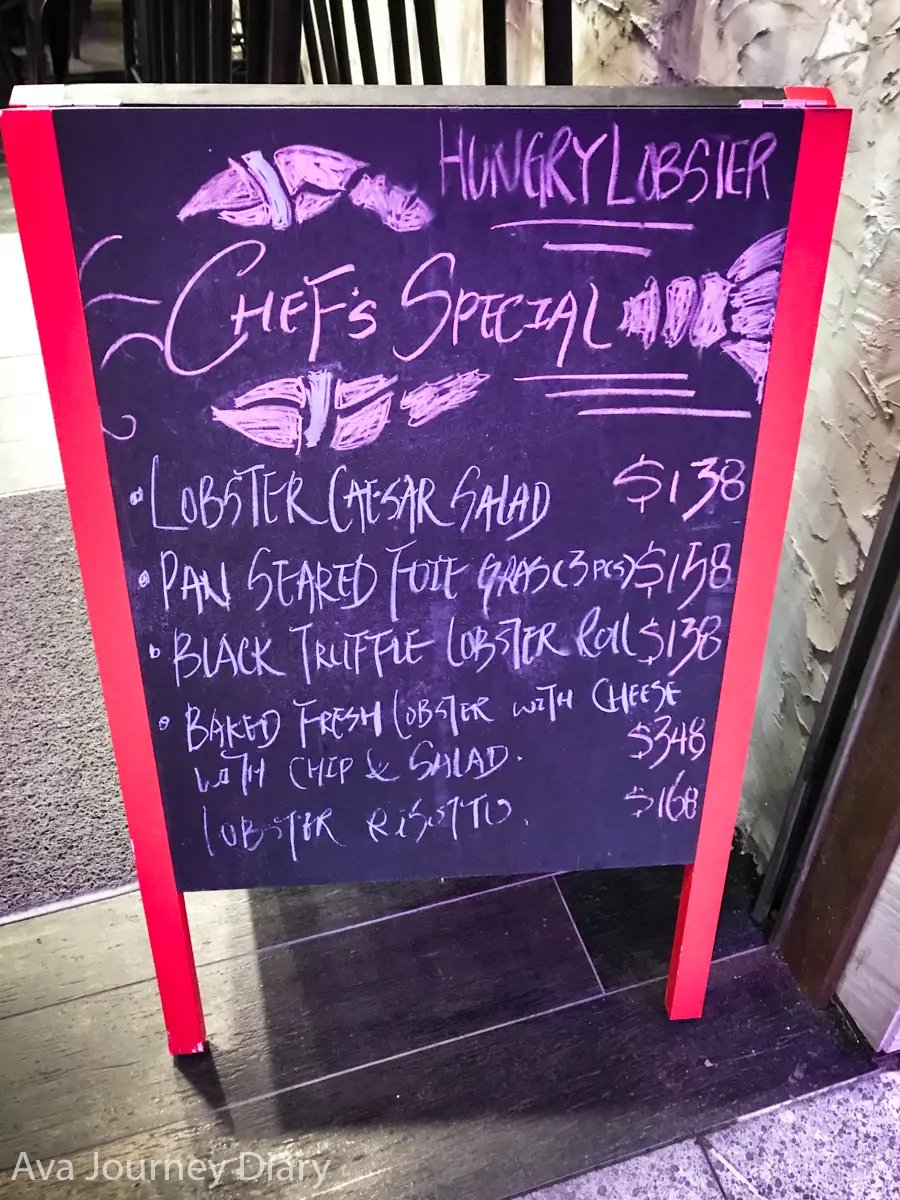 HUNGRY LOBSTER
CHEF's SPECIAL
• LOBSTER CAESAR SALAD $138
• PAN SEARED FOIE GRAS (3 PCS) $158
• BLACK TRUFFLE LOBSTER Roll $138
• BAKED FRESH LOBSTER WITH CHEESE
WITH CHIP & SALAD. $348
LOBSTER RISOTTO. $168
Ava Journey Diary